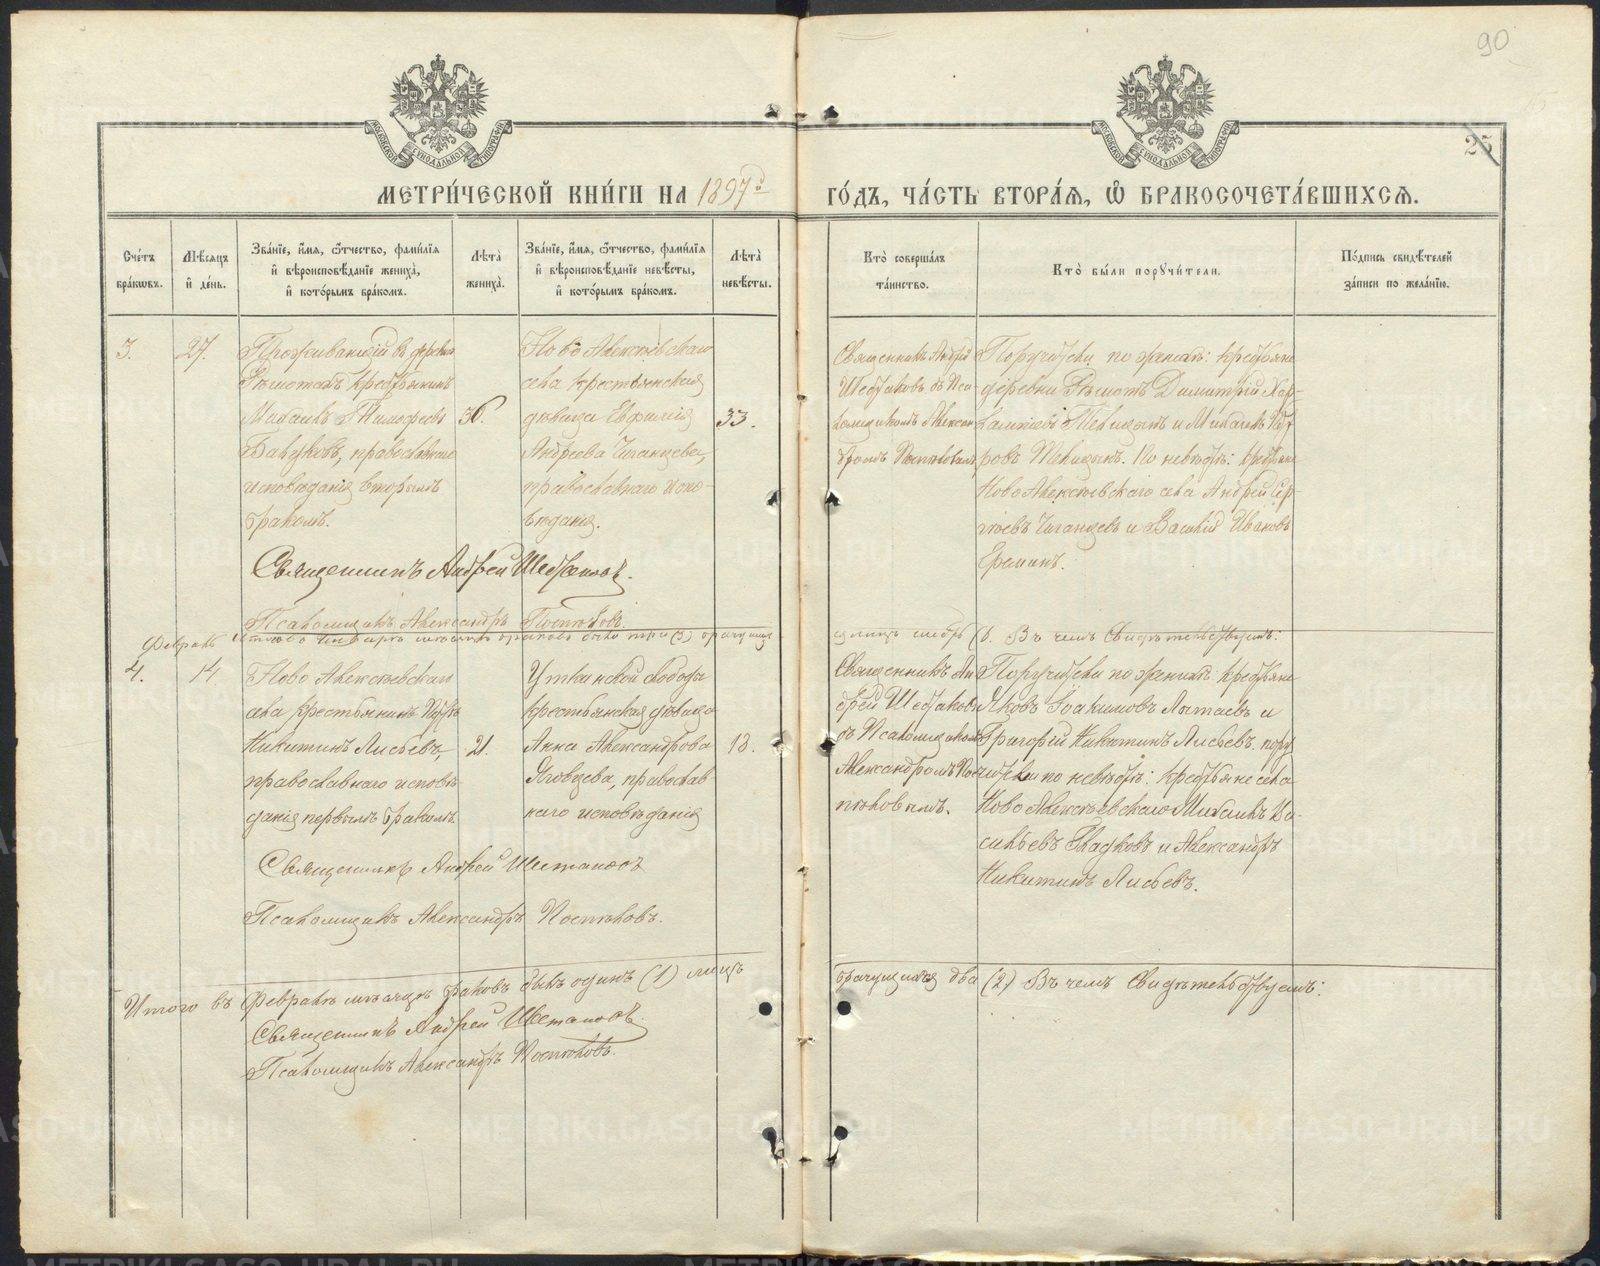 90
25
МЕТРИ́ЧЕСКОЙ КНИ́ГИ НА 1897й
ГО́ДЪ, ЧА́СТЬ ВТОРА́Я, Ѿ БРАКОСОЧЕТА́ВШИХСЯ.
Сче́тъ бра́кѡвъ.
Мѣ́сяцъ и́ де́нь.
Зва́нїе, и́мя, ѻ́тчество, фами́лїя и́ вѣроисповѣ́данїе жениха̀, и́ кото́рымъ бра́комъ.
Лѣта̀ жениха̀.
Зва́нїе, и́мя, ѻ́тчество, фами́лїя и́ вѣроисповѣ́данїе невѣ́сты, и́ кото́рымъ бра́комъ.
Лѣта̀ невѣ́сты.
Кто̀ соверша́лъ та́инство.
Кто̀ бы́ли порꙋчи́тели.
По́дпись свидѣ́телей за́писи по жела́нїю.
3.
27.
Проживающій въ деревнѣ
крестьянинъ
Михаилъ Тимофеевъ
православнаго
исповѣданія вторымъ
бракомъ.
36.
Ново Алексѣевскаго
села крестьянская
дѣвица Евфимія
Андреева
православнаго испо-
вѣданія.
33.
Священникъ Андрей
Шестаковъ съ Пса-
ломщикомъ Алексан
дромъ Постниковымъ
Поручители по женихѣ: крестьяне
деревни Димитрій Хар-
и Михаилъ
По невѣстѣ: крестьяне
Ново Алексѣевскаго села Андрей Сер-
гѣевъ и Василій Ивановъ
Ереминъ.
Священникъ Андрей Шестаковъ.
Псаломщикъ Александръ
Итого въ Январѣ мѣсяцѣ браковъ было три (3) брачущихся
лицъ шесть (6. Въ чемъ Свидѣтельствуемъ:
Февраль
4.
14
Ново Алексѣевскаго
села крестьянинъ Петръ
Никитинъ Лисьевъ,
православнаго исповѣ
данія первымъ бракомъ.
21.
Уткинской слободы
крестьянская дѣвица
Анна Александрова
православ
наго исповѣданія
18.
Священникъ Ан
дрей Шестаковъ
съ Псаломщикомъ
Александромъ Пос
Поручители по женихѣ: крестьяне
Яковъ Іоакимовъ и
Григорій Никитинъ Лисьевъ. пору
чители по невѣстѣ: Крестьяне села
Ново Алексѣевскаго Михаилъ Ва-
сильевъ Гладковъ и Александръ
Никитинъ Лисьевъ.
Священникъ Андрей Шестаковъ
Псаломщикъ Александръ
Итого въ Февралѣ мѣсяцѣ браковъ былъ одинъ (1) лицъ
брачущихся два (2) Въ чемъ Свидѣтельствуемъ:
Священникъ Андрей Шестаковъ.
Псаломщикъ Александръ
METRIKI.GASO-URAL.RU